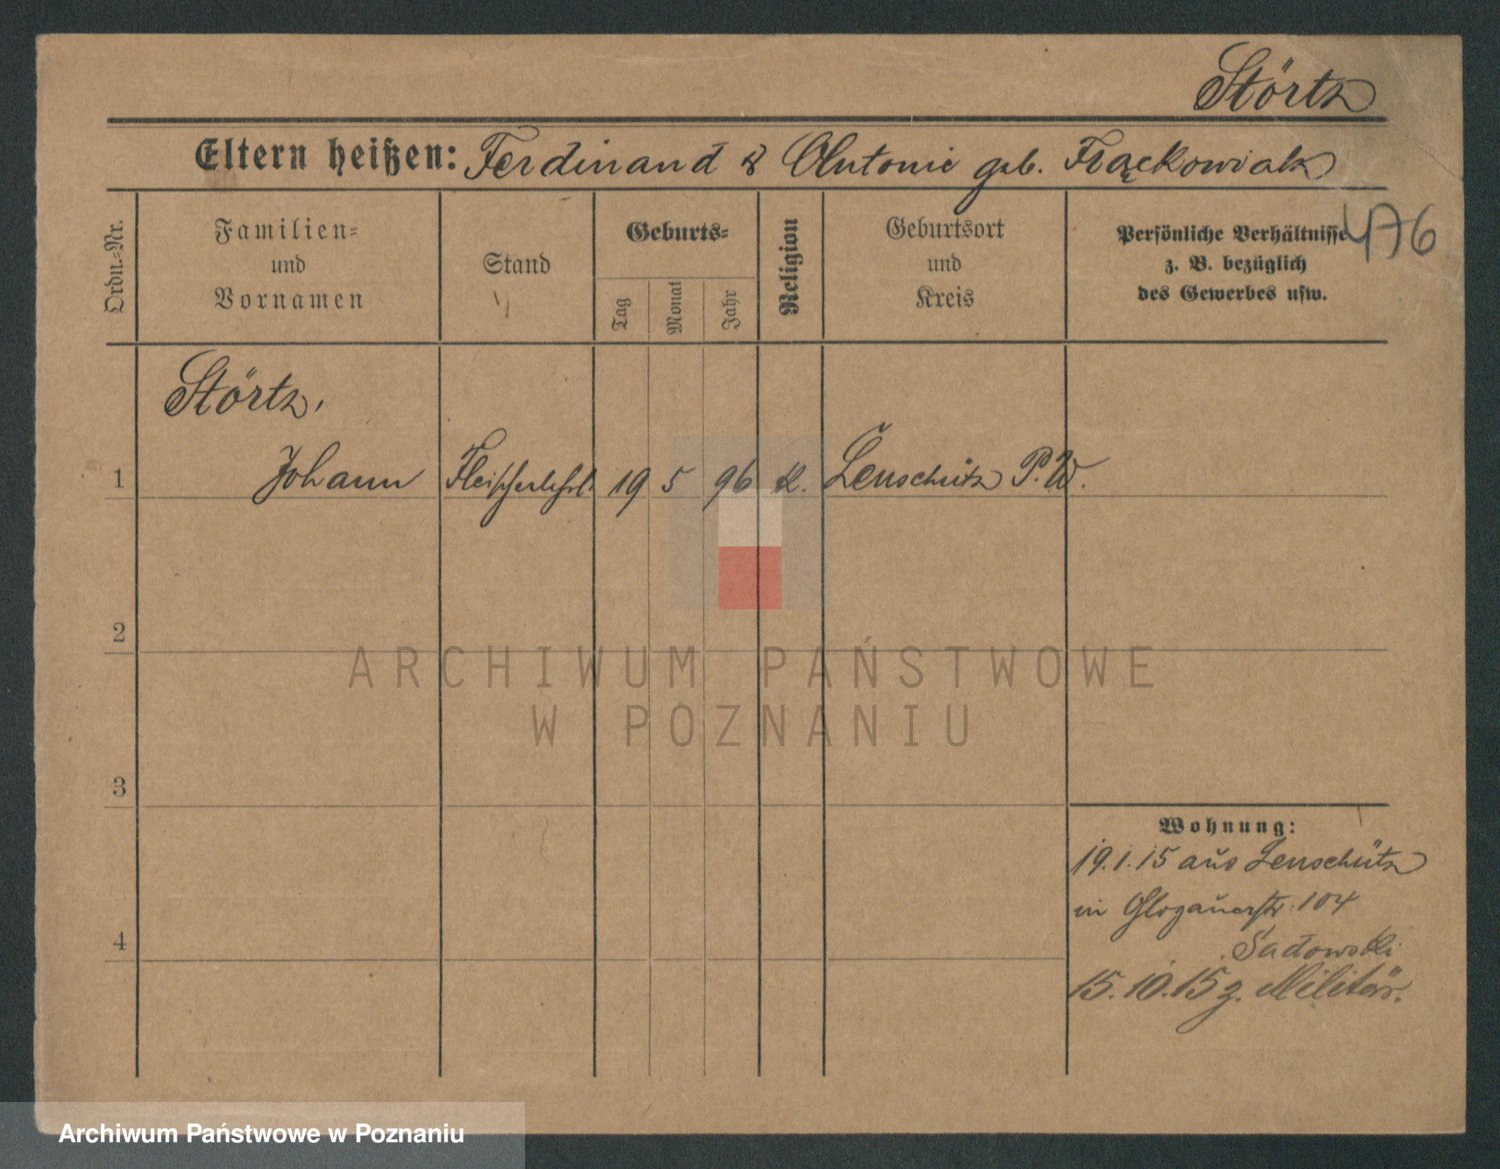 Störtz
Eltern heißen: Ferdinand & Antonie geb. Frąckowiak
476
Ordn.-Nr.
Familien- und Vornamen
Stand
Geburts-
Tag
Monat
Jahr
Religion
Geburtsort und Kreis
Persönliche Verhältnisse
z. B. bezüglich
des Gewerbes usw.
Störtz,
1 Johann Fleischerlehrl. 19 5 96 k. Lenschütz P.W.
2
ARCHIWUM PAŃSTWOWE
W POZNANIU
3
Wohnung:
19.1.15 aus Lenschütz
in Glogauerstr. 104
4
Sadowski
15.10.15 z. Militär.
Archiwum Państwowe w Poznaniu